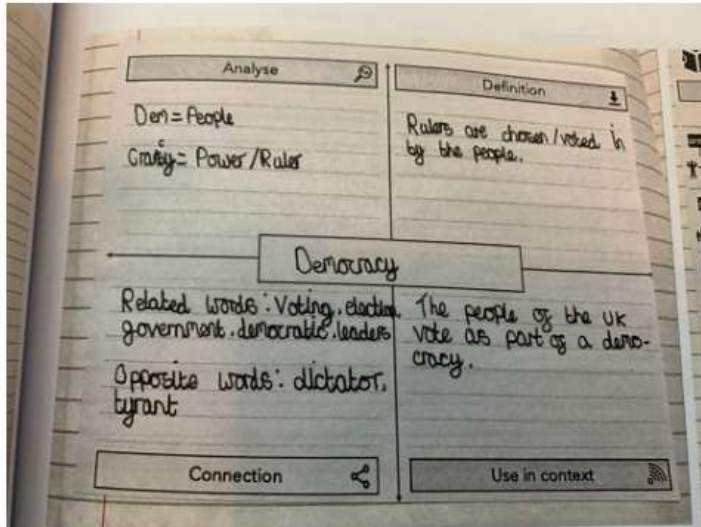 Analyse
Dem = People
Cracy = Power/Ruler
Definition
Rulers are chosen/voted in
by the people.
Democracy
Related words: Voting, election,
government, democratic, leaders
Opposite words: dictator,
tyrant
Connection
The people of the UK
vote as part of a demo-
cracy.
Use in context